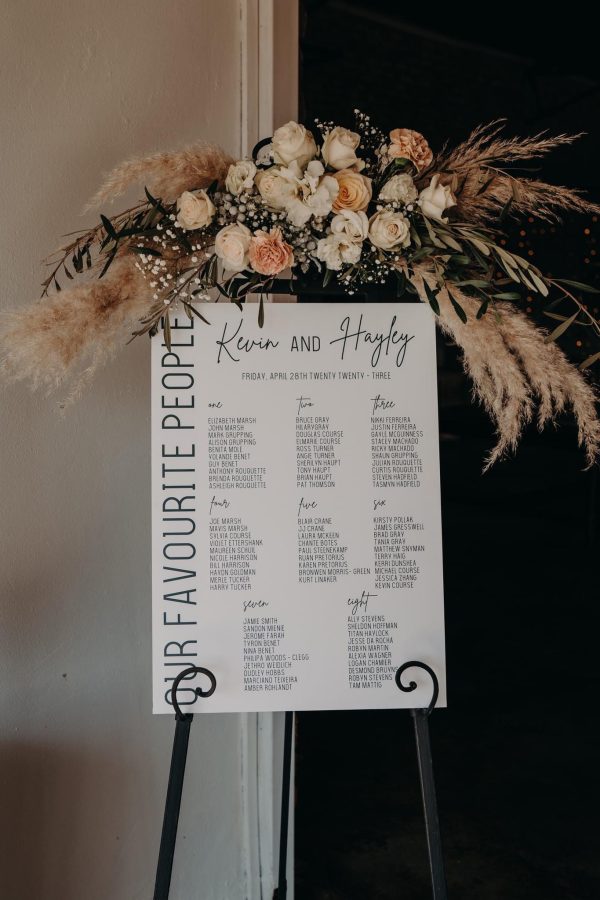 OUR FAVOURITE PEOPLE
Kevin AND Hayley
FRIDAY, APRIL 28TH TWENTY TWENTY - THREE
one
ELIZABETH MARSH
JOHN MARSH
MARK GRUPPING
ALISON GRUPPING
BENITA MOLE
YOLANDE BENET
GUY BENET
ANTHONY ROUQUETTE
BRENDA ROUQUETTE
ASHLEIGH ROUQUETTE
two
BRUCE GRAY
HILARYGRAY
DOUGLAS COURSE
ELMARIE COURSE
ROSS TURNER
ANGIE TURNER
SHERILYN HAUPT
TONY HAUPT
BRIAN HAUPT
PAT THOMSON
three
NIKKI FERREIRA
JUSTIN FERREIRA
GAYLE MCGUINNESS
STACEY MACHADO
RICKY MACHADO
SHAUN GRUPPING
JULIAN ROUQUETTE
CURTIS ROUQUETTE
STEVEN HADFIELD
TASMYN HADFIELD
four
JOE MARSH
MAVIS MARSH
SYLVIA COURSE
VIOLET ETTERSHANK
MAUREEN SCHUIL
NICOLE HARRISON
BILL HARRISON
HAYDN GOLDMAN
MERLE TUCKER
HARRY TUCKER
five
BLAIR CRANE
JJ CRANE
LAURA MCKEEN
CHANTE BOTES
PAUL STEENEKAMP
RUAN PRETORIUS
KAREN PRETORIUS
BRONWEN MORRIS- GREEN
KURT LINAKER
six
KIRSTY POLLAK
JAMES GRESSWELL
BRAD GRAY
TANIA GRAY
MATTHEW SNYMAN
TERRY HAIG
KERRI DUNSHEA
MICHAEL COURSE
JESSICA ZHANG
KEVIN COURSE
seven
JAMIE SMITH
SANDON MIENIE
JEROME FARAH
TYRON BENET
NINA BENET
PHILIPA WOODS - CLEGG
JETHRO WEIDLICH
DUDLEY HOBBS
MARCIANO TEIXEIRA
AMBER ROHLANDT
eight
ALLY STEVENS
SHELDON HOFFMAN
TITAN HAYLOCK
JESSE DA ROCHA
ROBYN MARTIN
ALEXIA WAGNER
LOGAN CHAMIER
DESMOND BRUYNS
ROBYN STEVENS
TAM MATTIG